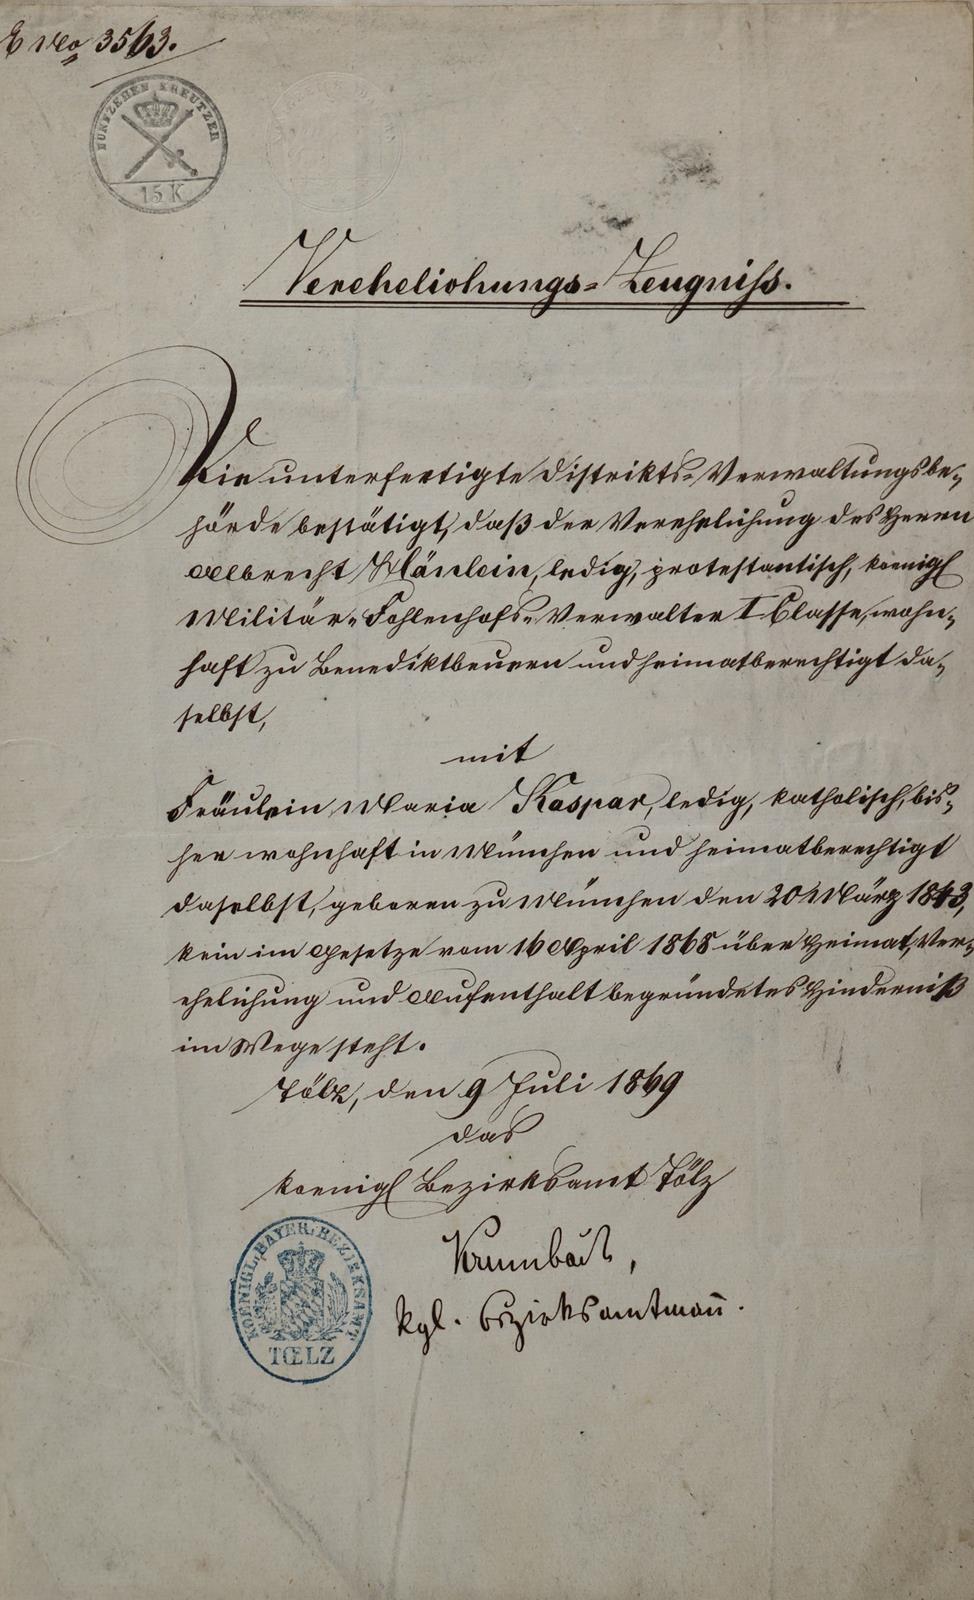 E No 3563.
FÜNFZEHEN KREUTZER
15 K
Verehelichungs-Zeugniss.
Die unterfertigte Distrikts-Verwaltungsbe-
hörde bestätigt, daß der Verehelichung des Herrn
Albrecht Hänlein, ledig, protestantisch, koenigl
Militär-Fohlenhofs-Verwalter I Classe, wohn-
haft zu Benediktbeuern und heimatberechtigt da-
selbst,
mit
Fräulein Maria Kaspar, ledig, katholisch, bis-
her wohnhaft in München und heimatberechtigt
daselbst, geboren zu München den 20 März 1843,
kein im Gesetze vom 16 April 1868 über Heimat, Ver-
ehelichung und Aufenthalt begründetes Hinderniß
im Wege steht.
Tölz, den 9 Juli 1869
das
koenigl Bezirksamt Tölz
kgl. Bezirksamtmañ.
KOENIGL. BAYER. BEZIRKSAMT
TŒLZ